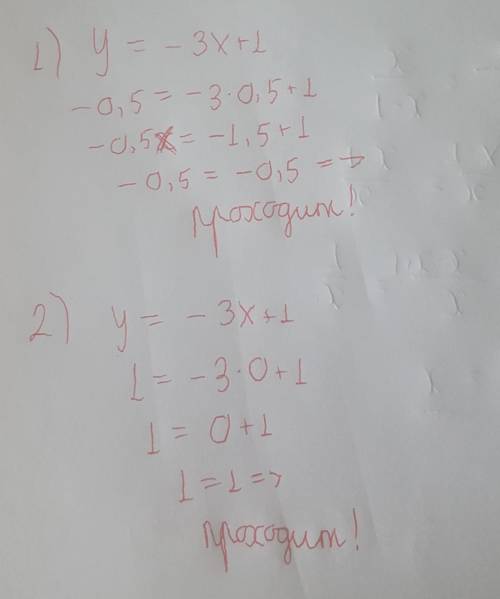 1) y = -3x+1
-0,5 = -3·0,5+1
-0,5 = -1,5+1
-0,5 = -0,5 =>
проходит!
2) y = -3x+1
1 = -3·0+1
1 = 0+1
1 = 1 =>
проходит!